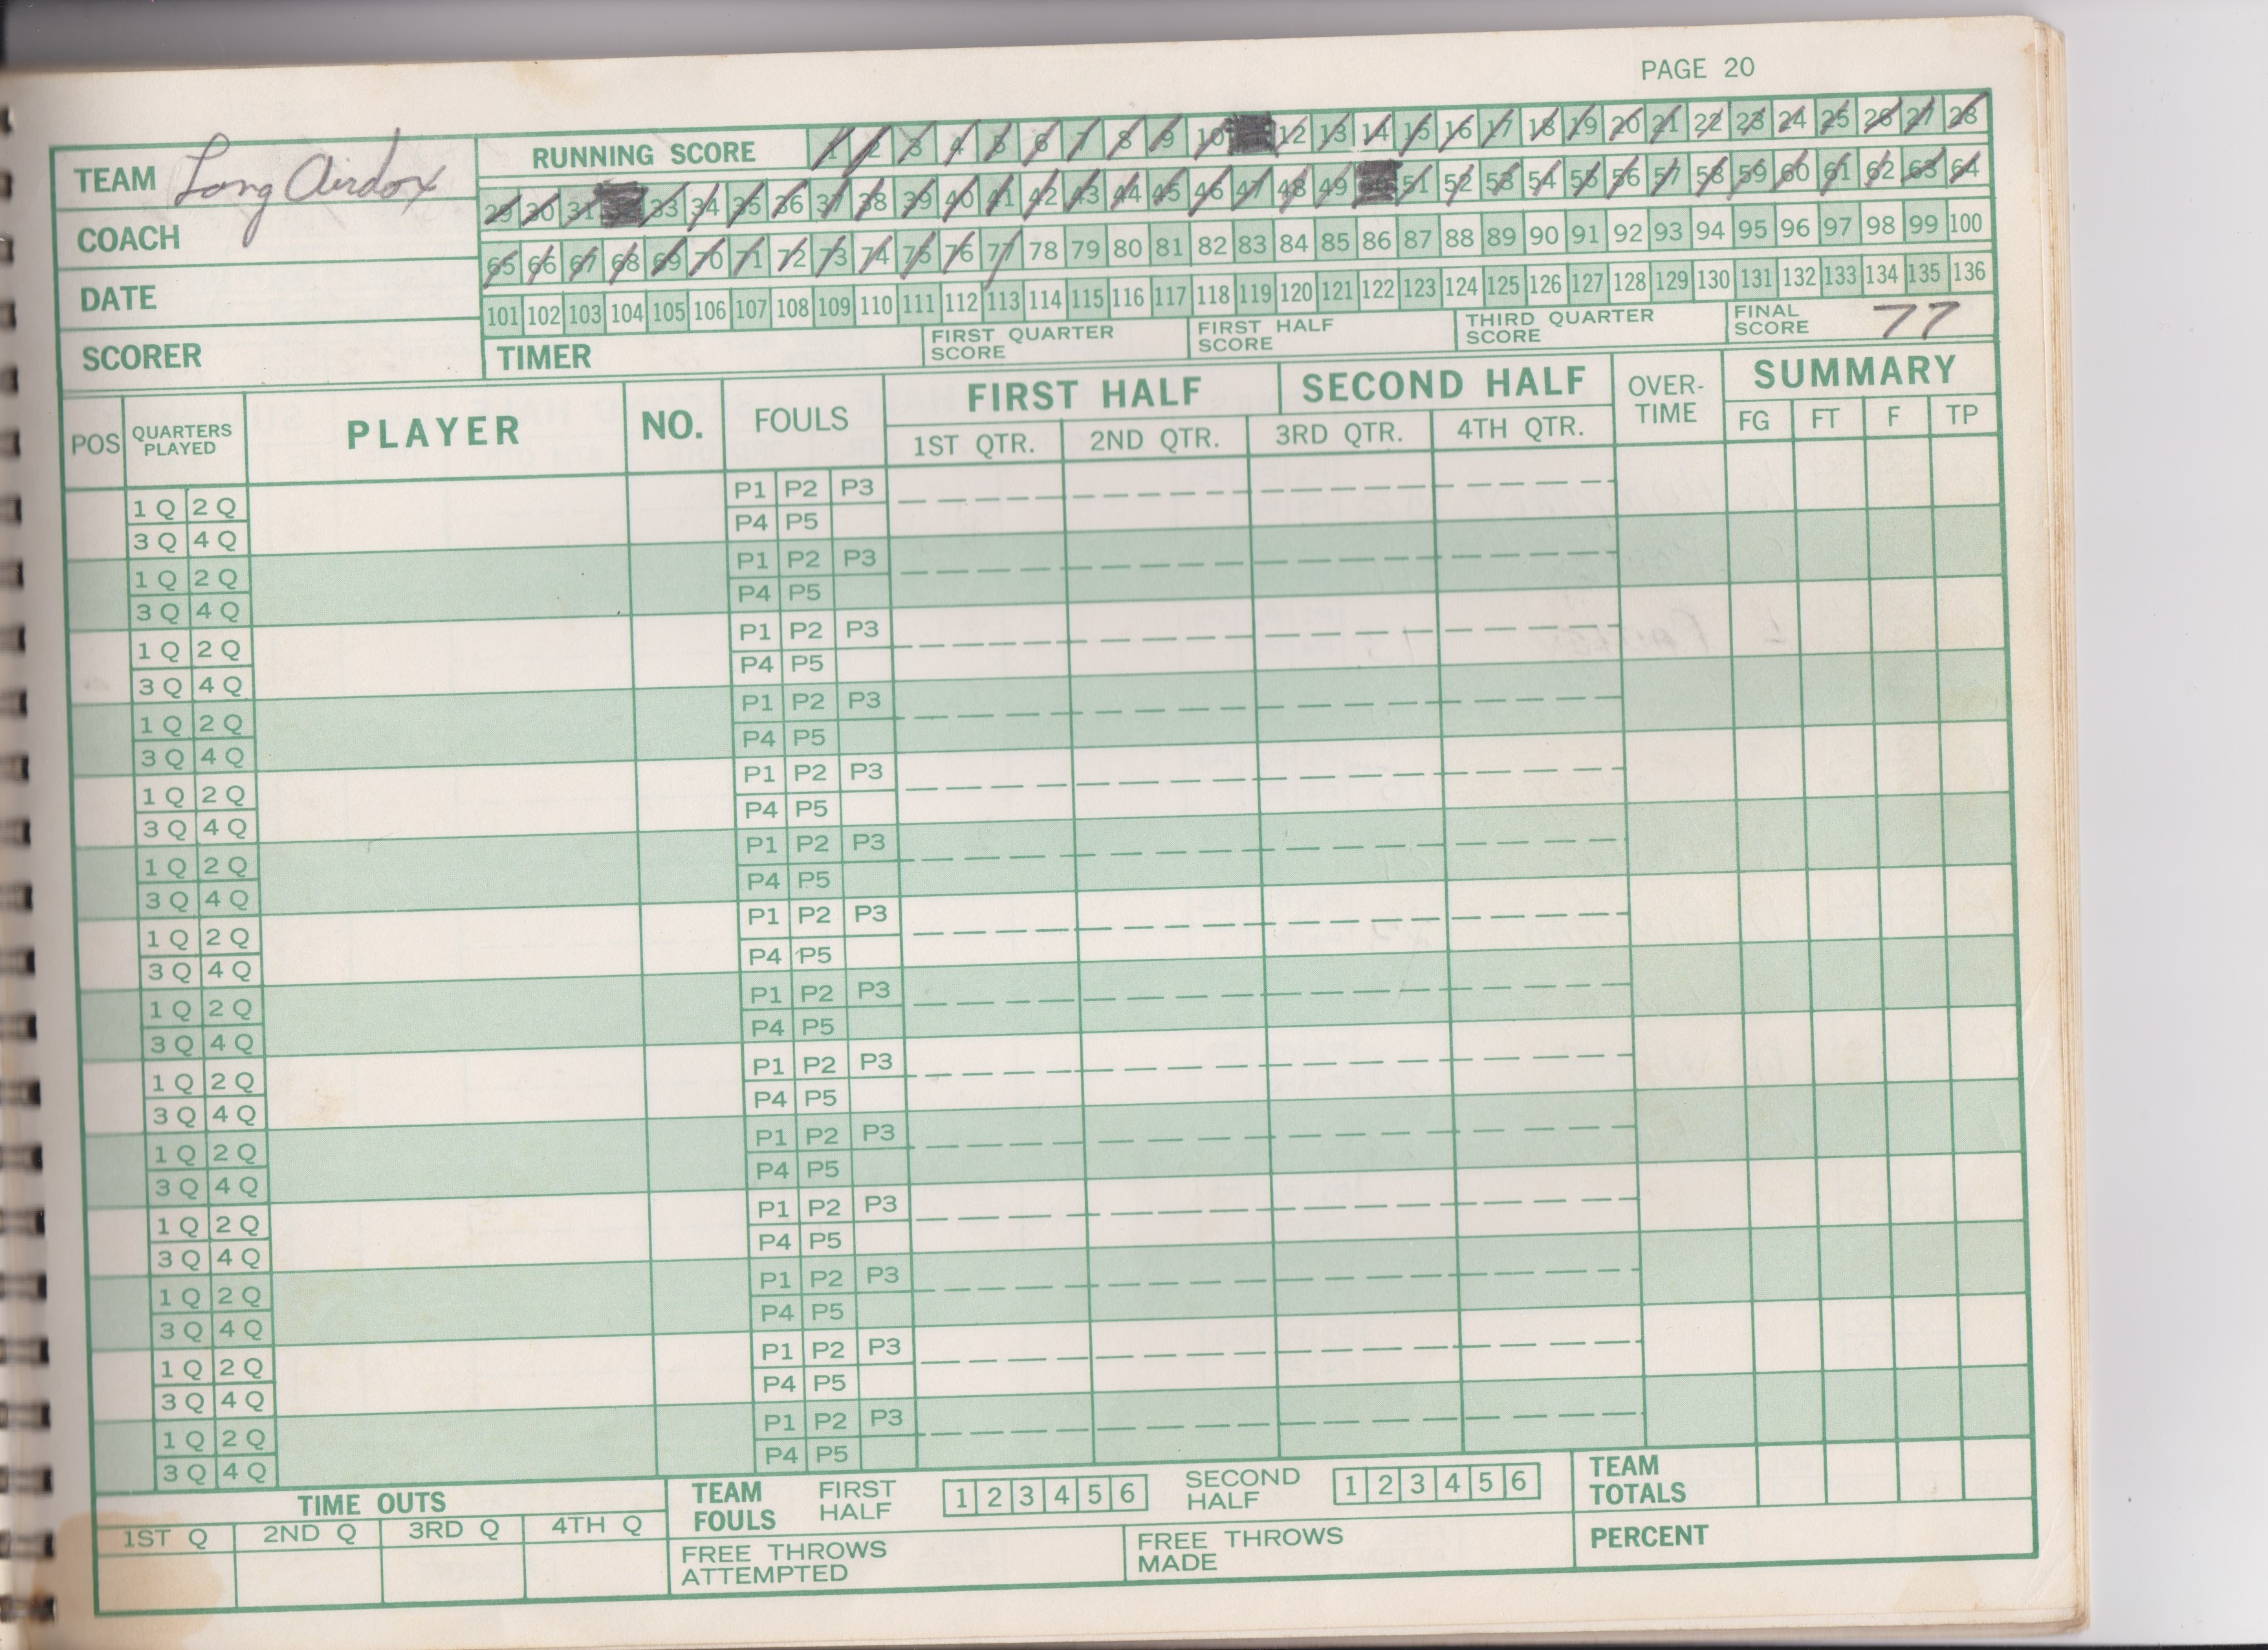 PAGE 20
TEAM Long Airdox
RUNNING SCORE 1 2 3 4 5 6 7 8 9 10 12 13 14 15 16 17 18 19 20 21 22 23 24 25 26 27 28
29 30 31 33 34 35 36 37 38 39 40 41 42 43 44 45 46 47 48 49 51 52 53 54 55 56 57 58 59 60 61 62 63 64
COACH
65 66 67 68 69 70 71 72 73 74 75 76 77 78 79 80 81 82 83 84 85 86 87 88 89 90 91 92 93 94 95 96 97 98 99 100
DATE
101 102 103 104 105 106 107 108 109 110 111 112 113 114 115 116 117 118 119 120 121 122 123 124 125 126 127 128 129 130 131 132 133 134 135 136
SCORER
TIMER
FIRST QUARTER SCORE
FIRST HALF SCORE
THIRD QUARTER SCORE
FINAL SCORE 77
POS QUARTERS PLAYED PLAYER NO. FOULS FIRST HALF SECOND HALF OVER-TIME SUMMARY
1ST QTR. 2ND QTR. 3RD QTR. 4TH QTR. FG FT F TP
1 Q 2 Q P1 P2 P3
3 Q 4 Q P4 P5
1 Q 2 Q P1 P2 P3
3 Q 4 Q P4 P5
1 Q 2 Q P1 P2 P3
3 Q 4 Q P4 P5
1 Q 2 Q P1 P2 P3
3 Q 4 Q P4 P5
1 Q 2 Q P1 P2 P3
3 Q 4 Q P4 P5
1 Q 2 Q P1 P2 P3
3 Q 4 Q P4 P5
1 Q 2 Q P1 P2 P3
3 Q 4 Q P4 P5
1 Q 2 Q P1 P2 P3
3 Q 4 Q P4 P5
1 Q 2 Q P1 P2 P3
3 Q 4 Q P4 P5
1 Q 2 Q P1 P2 P3
3 Q 4 Q P4 P5
1 Q 2 Q P1 P2 P3
3 Q 4 Q P4 P5
1 Q 2 Q P1 P2 P3
3 Q 4 Q P4 P5
1 Q 2 Q P1 P2 P3
3 Q 4 Q P4 P5
1 Q 2 Q P1 P2 P3
3 Q 4 Q P4 P5
TIME OUTS
1ST Q 2ND Q 3RD Q 4TH Q
TEAM FOULS FIRST HALF 1 2 3 4 5 6 SECOND HALF 1 2 3 4 5 6
TEAM TOTALS
FREE THROWS ATTEMPTED
FREE THROWS MADE
PERCENT